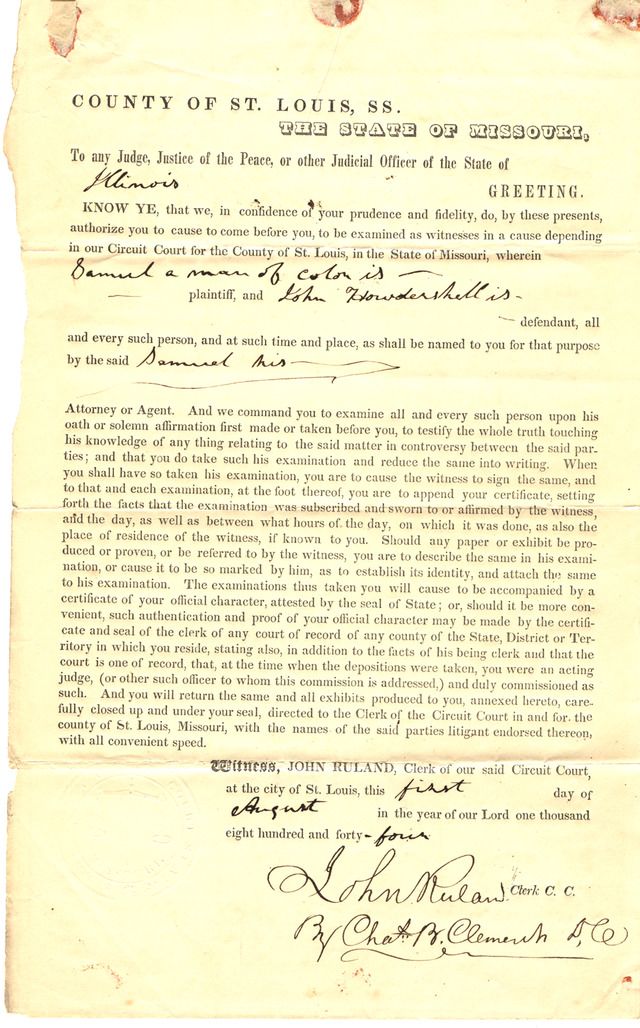 COUNTY OF ST. LOUIS, SS.
THE STATE OF MISSOURI,
To any Judge, Justice of the Peace, or other Judicial Officer of the State of
Illinois GREETING.
KNOW YE, that we, in confidence of your prudence and fidelity, do, by these presents,
authorize you to cause to come before you, to be examined as witnesses in a cause depending
in our Circuit Court for the County of St. Louis, in the State of Missouri, wherein
Samuel a man of color is —
— plaintiff, and John Howdershell is -
— defendant, all
and every such person, and at such time and place, as shall be named to you for that purpose
by the said Samuel his
Attorney or Agent. And we command you to examine all and every such person upon his
oath or solemn affirmation first made or taken before you, to testify the whole truth touching
his knowledge of any thing relating to the said matter in controversy between the said par-
ties; and that you do take such his examination and reduce the same into writing. When
you shall have so taken his examination, you are to cause the witness to sign the same, and
to that and each examination, at the foot thereof, you are to append your certificate, setting
forth the facts that the examination was subscribed and sworn to or affirmed by the witness,
and the day, as well as between what hours of the day, on which it was done, as also the
place of residence of the witness, if known to you. Should any paper or exhibit be pro-
duced or proven, or be referred to by the witness, you are to describe the same in his exami-
nation, or cause it to be so marked by him, as to establish its identity, and attach the same
to his examination. The examinations thus taken you will cause to be accompanied by a
certificate of your official character, attested by the seal of State; or, should it be more con-
venient, such authentication and proof of your official character may be made by the certifi-
cate and seal of the clerk of any court of record of any county of the State, District or Ter-
ritory in which you reside, stating also, in addition to the facts of his being clerk and that the
court is one of record, that, at the time when the depositions were taken, you were an acting
judge, (or other such officer to whom this commission is addressed,) and duly commissioned as
such. And you will return the same and all exhibits produced to you, annexed hereto, care-
fully closed up and under your seal, directed to the Clerk of the Circuit Court in and for. the
county of St. Louis, Missouri, with the names of the said parties litigant endorsed thereon,
with all convenient speed.
Witness, JOHN RULAND, Clerk of our said Circuit Court,
at the city of St. Louis, this first day of
August in the year of our Lord one thousand
eight hundred and forty-four
John Ruland Clerk C. C.
By Chas. B. Clements D, C